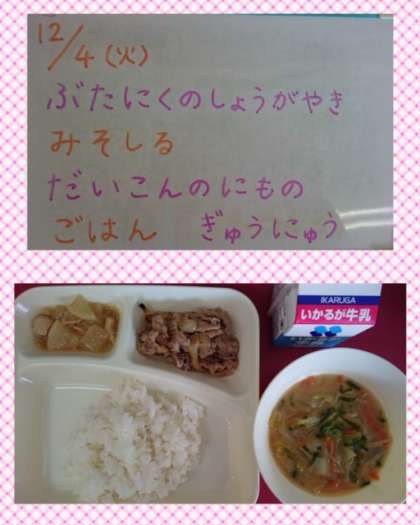 12/4(火)
ぶたにくのしょうがやき
みそしる
だいこんのにもの
ごはん ぎゅうにゅう
IKARUGA
いかるが牛乳